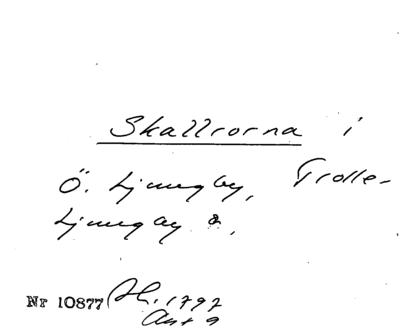 Skallrorna i
Ö. Ljungby, Trolle-
Ljungby &,
Nr 10877 1797